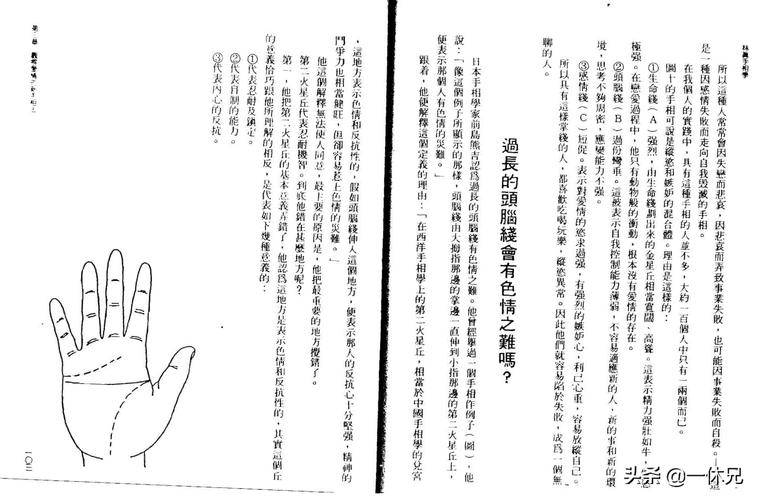 林真手相學
所以這種人常常會因失戀而悲哀，因悲哀而弄致事業失敗，也可能因事業失敗而自殺。——這
是一種因感情失敗而走向自我毀滅的手相。
在我個人的實踐中，具有這種手相的人並不多，大約一百個人中只有一兩個而已。
圖十的手相可說是縱慾和嫉妒的混合體。理由是這樣的：
①生命綫（A）強烈，由生命綫劃出來的金星丘相當寬闊、高聳。這表示精力強壯如牛，
極強。在戀愛過程中，他只有動物般的衝動，根本沒有愛情的存在。
②頭腦綫（B）過份彎垂。這被表示自我控制能力薄弱，不容易適應新的人、新的事和新的環
境，思考不夠周密，應變能力不强。
③感情綫（C）短促。表示對愛情的慾求過强，有强烈的嫉妒心，利己心重，容易放縱自己。
所以具有這樣掌綫的人，都喜歡吃喝玩樂，縱慾異常。因此他們就容易陷於失敗，成爲一個無
聊的人。
過長的頭腦綫會有色情之難嗎？
日本手相學家前島熊吉認爲過長的頭腦綫有色情之難。他曾經舉過一個手相作例子（圖），他
說：「像這個例子所顯示的那樣，頭腦綫由大拇指那邊的掌邊一直伸到小指那邊的第二火星丘上，
便表示那個人有色情的災難。」
跟着，他便解釋這個定義的理由：「在西洋手相學上的第二火星丘，相當於中國手相學的兌宮
，這地方表示色情和反抗性的，假如頭腦綫伸入這個地方，便表示那人的反抗心十分堅强，精神的
鬥爭力也相當健旺，但卻容易惹上色情的災難。」
他這個解釋無法使人同意，最主要的原因是，他把最重要的地方攪錯了。
第二火星丘代表忍耐機智。到底他錯在甚麼地方呢？
第一，他把第二火星丘的基本意義弄錯了，他認爲這地方是表示色情和反抗性的，其實這個丘
的意義恰巧跟他所理解的相反，是代表如下幾種意義的：
①代表忍耐及鎮定。
②代表自制的能力。
③代表內心的反抗。
一〇三
头条 @一休兄